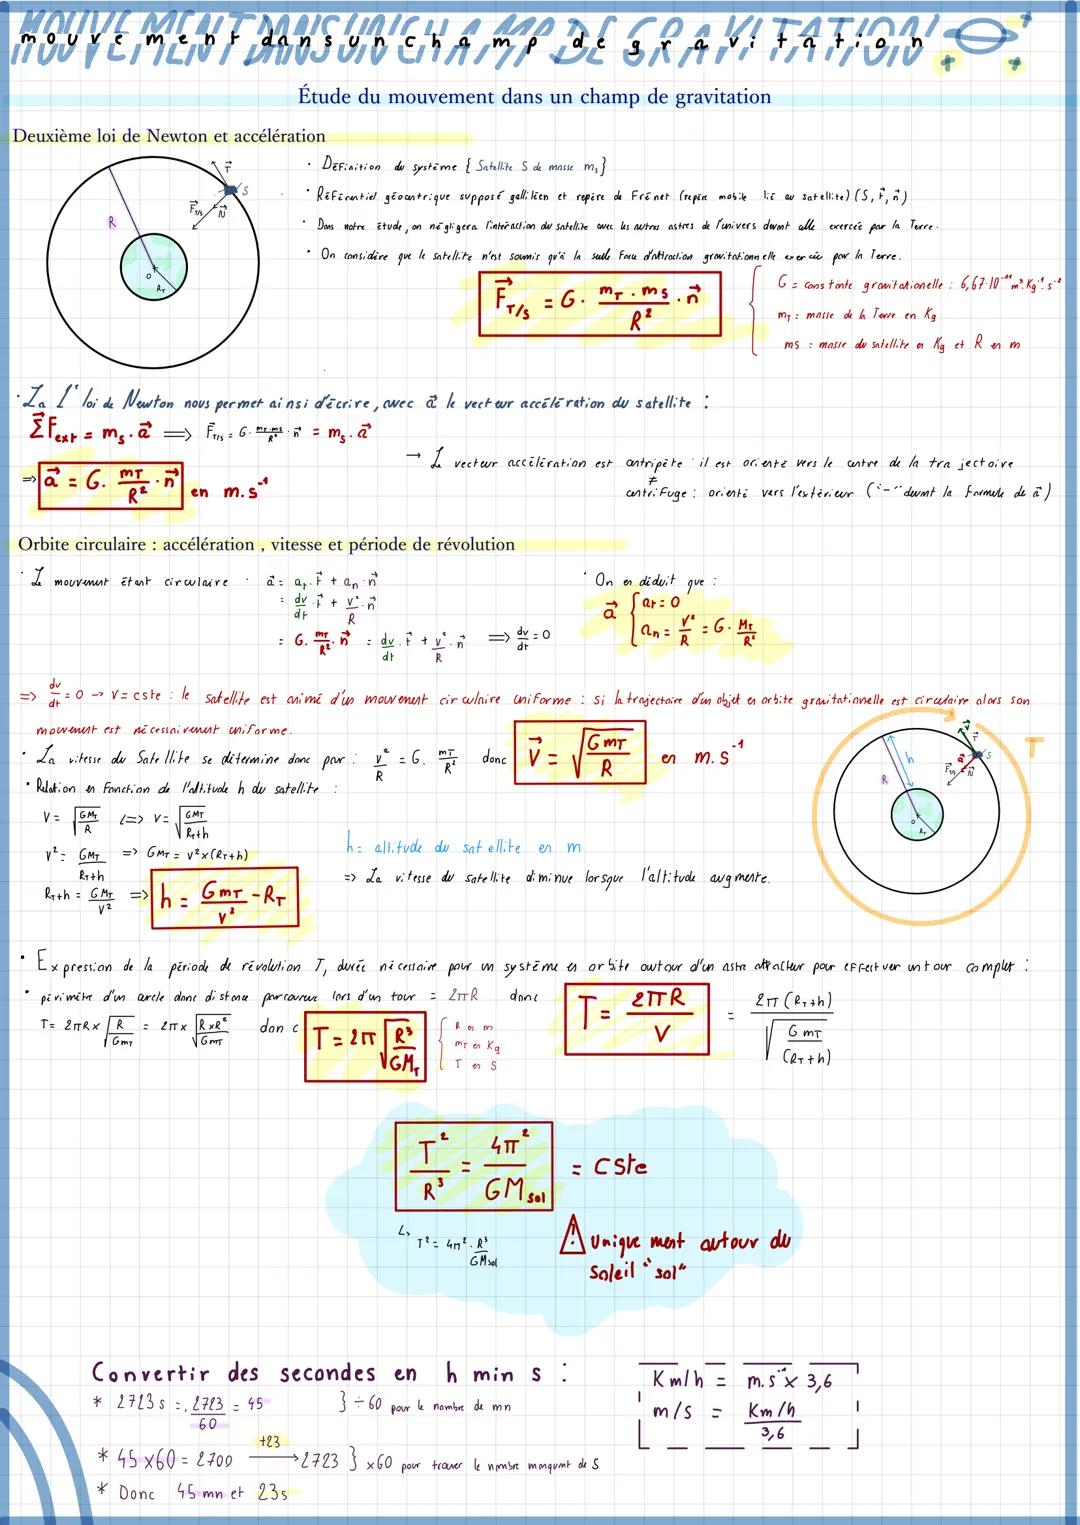 mouvement dans un champ de gravitation
Étude du mouvement dans un champ de gravitation
Deuxième loi de Newton et accélération
• Définition du système { Satellite S de masse ms}
• Référentiel géocentrique supposé galliléen et repère de Frénet (repère mobile lié au satellite) (S, t⃗, n⃗)
• Dans notre étude, on négligera l'intéraction du satellite avec les autres astres de l'univers devant celle exercée par la Terre.
• On considère que le satellite n'est soumis qu'à la seule Force d'attraction gravitationnelle exercée par la Terre.
R
O
R_T
T⃗
S
F⃗_T/S
N⃗
F⃗_T/S = G · (m_T · m_S)/R² · n⃗
G = constante gravitationelle : 6,67·10⁻¹¹ m³·Kg⁻¹·s⁻²
m_T = masse de la Terre en Kg
ms = masse du satellite en Kg et R en m
ΣF⃗ext = m_s · a⃗ ⟹ F⃗_T/S = G · (m_T·m_S)/R² · n⃗ = m_s · a⃗
⇒ a⃗ = G · m_T/R² · n⃗ en m.s⁻¹
→ Le vecteur accélération est centripète : il est orienté vers le centre de la trajectoire
≠
centrifuge : orienté vers l'extérieur ("-" devant la formule de a⃗)
Orbite circulaire : accélération , vitesse et période de révolution
• Le mouvement étant circulaire : a⃗ = a_t · t⃗ + a_n · n⃗
= dv/dt · t⃗ + v²/R · n⃗
= G · m_T/R² · n⃗ = dv/dt · t⃗ + v²/R · n⃗ ⟹ dv/dt = 0
• On en déduit que :
a⃗ { a_t = 0
a_n = v²/R = G · M_T/R²
⇒ dv/dt = 0 → V = cste : le satellite est animé d'un mouvement circulaire uniforme : si la trajectoire d'un objet en orbite gravitationnelle est circulaire alors son
mouvement est nécessairement uniforme.
• La vitesse du Satellite se détermine donc par : v²/R = G · m_T/R² donc V⃗ = √(G m_T/R) en m.s⁻¹
• Relation en Fonction de l'altitude h du satellite :
V = √(GM_T/R) <=> V = √(GM_T/(R_T+h))
V² = GM_T/(R_T+h) => GM_T = v²×(R_T+h)
R_T+h = GM_T/V² => h = G m_T/v² - R_T
h = altitude du satellite en m
=> La vitesse du satellite diminue lorsque l'altitude augmente.
T
h
R
S
O
R_T
• Expression de la période de révolution T, durée nécessaire pour un système en orbite autour d'un astre attracteur pour effectuer un tour complet :
• périmètre d'un cercle donc distance parcourue lors d'un tour = 2πR donc T = 2πR/V = 2π(R_T+h)/√(G m_T/(R_T+h))
T = 2πR × √(R/Gm_T) = 2π × √(R×R²/Gm_T) donc T = 2π √(R³/GM_T)
R en m
m_T en Kg
T en S
T²/R³ = 4π²/GM_sol = cste
↳ T² = 4π² · R³/GM_sol
⚠ Uniquement autour du
Soleil "sol"
Convertir des secondes en h min s :
* 2723 s = 2723/60 = 45 } ÷60 pour le nombre de mn
* 45×60 = 2700 +23→ 2723 } ×60 pour trouver le nombre manquant de S
* Donc 45 mn et 23s
Km/h = m.s⁻¹ × 3,6
m/s = Km/h / 3,6